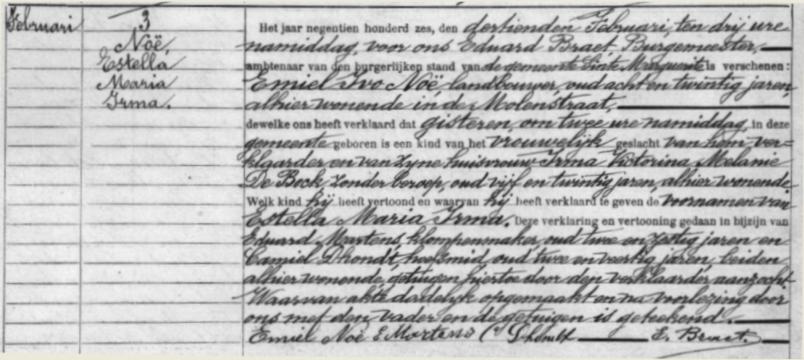 Februari
3
Noë,
Estella
Maria
Irma.
Het jaar negentien honderd zes, den dertienden Februari, ten drij ure
namiddag, voor ons Eduard Braet, Burgemeester,
ambtenaar van den burgerlijken stand van de gemeente Sinte Margriete is verschenen:
Emiel Ivo Noë, landbouwer, oud acht en twintig jaren,
alhier wonende in de Molenstraat,
dewelke ons heeft verklaard dat gisteren, om twee ure namiddag, in deze
gemeente geboren is een kind van het vrouwelijk geslacht van hem, ver-
klaarder en van zyne huisvrouw Irma Victorina Melanie
De Bock, zonder beroep, oud vijf en twintig jaren, alhier wonende
Welk kind hij heeft vertoond en waarvan hij heeft verklaard te geven de voornamen van
Estella Maria Irma. Deze verklaring en vertooning gedaan in bijzijn van
Eduard Martens, klompenmaker, oud twee en zestig jaren en
Camiel Dhondt, hoefsmid, oud twee en veertig jaren, beiden
alhier wonende, getuigen hiertoe door den verklaarder aanzocht.
Waarvan akte dadelijk opgemaakt en na voorlezing door
ons met den vader en de getuigen is geteekend.
Emiel Noë E Martens C Dhondt E. Braet.